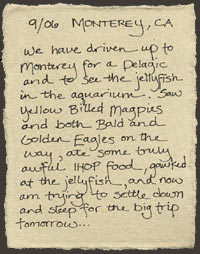 9/06 MONTEREY, CA
We have driven up to
Monterey for a Pelagic
and to see the jellyfish
in the aquarium. Saw
Yellow Billed Magpies
and both Bald and
Golden Eagles on the
way, ate some truly
awful IHOP food, gawked
at the jellyfish, and now
am trying to settle down
and sleep for the big trip
tomorrow...